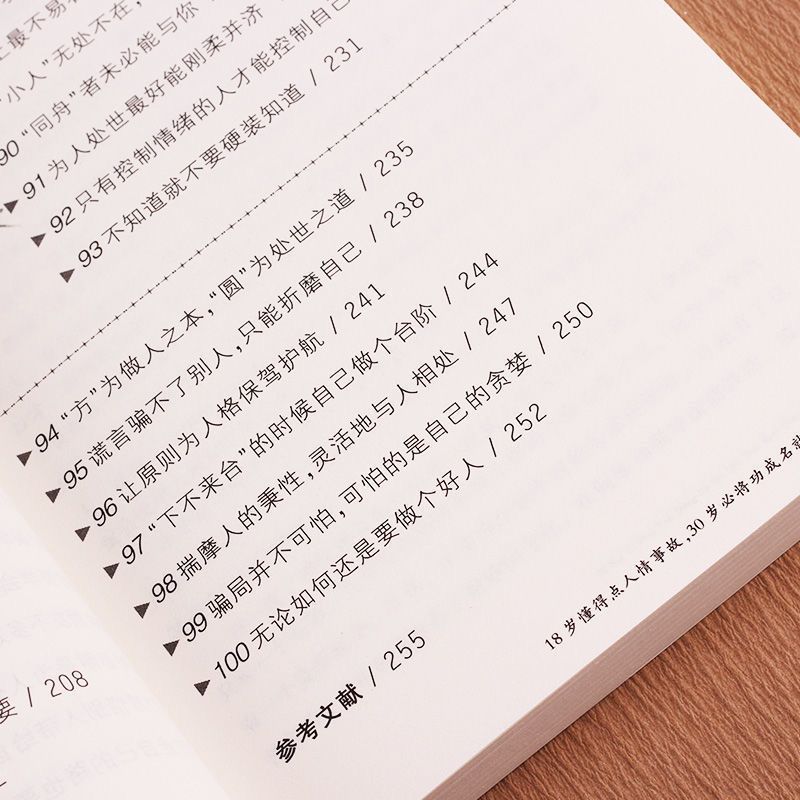 上最不易
“小人”无处不在，
90 “同舟”者未必能与你
▶ 91 为人处世最好能刚柔并济
▶ 92 只有控制情绪的人才能控制自己
▶ 93 不知道就不要硬装知道 / 231
▶ 94 “方”为做人之本，“圆”为处世之道 / 235
▶ 95 谎言骗不了别人，只能折磨自己 / 238
▶ 96 让原则为人格保驾护航 / 241
▶ 97 “下不来台”的时候自己做个台阶 / 244
▶ 98 揣摩人的秉性，灵活地与人相处 / 247
▶ 99 骗局并不可怕，可怕的是自己的贪婪 / 250
▶ 100 无论如何还是要做个好人 / 252
参考文献 / 255
18岁懂得点人情事故，30岁必将功成名就
要 / 208